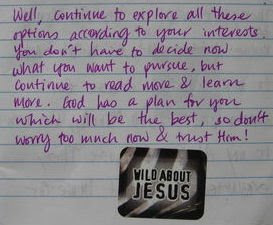 Well, continue to explore all these
options according to your interests.
You don't have to decide now
what you want to pursue, but
continue to read more & learn
more. God has a plan for you
which will be the best, so don't
worry too much now & trust Him!
WILD ABOUT
JESUS